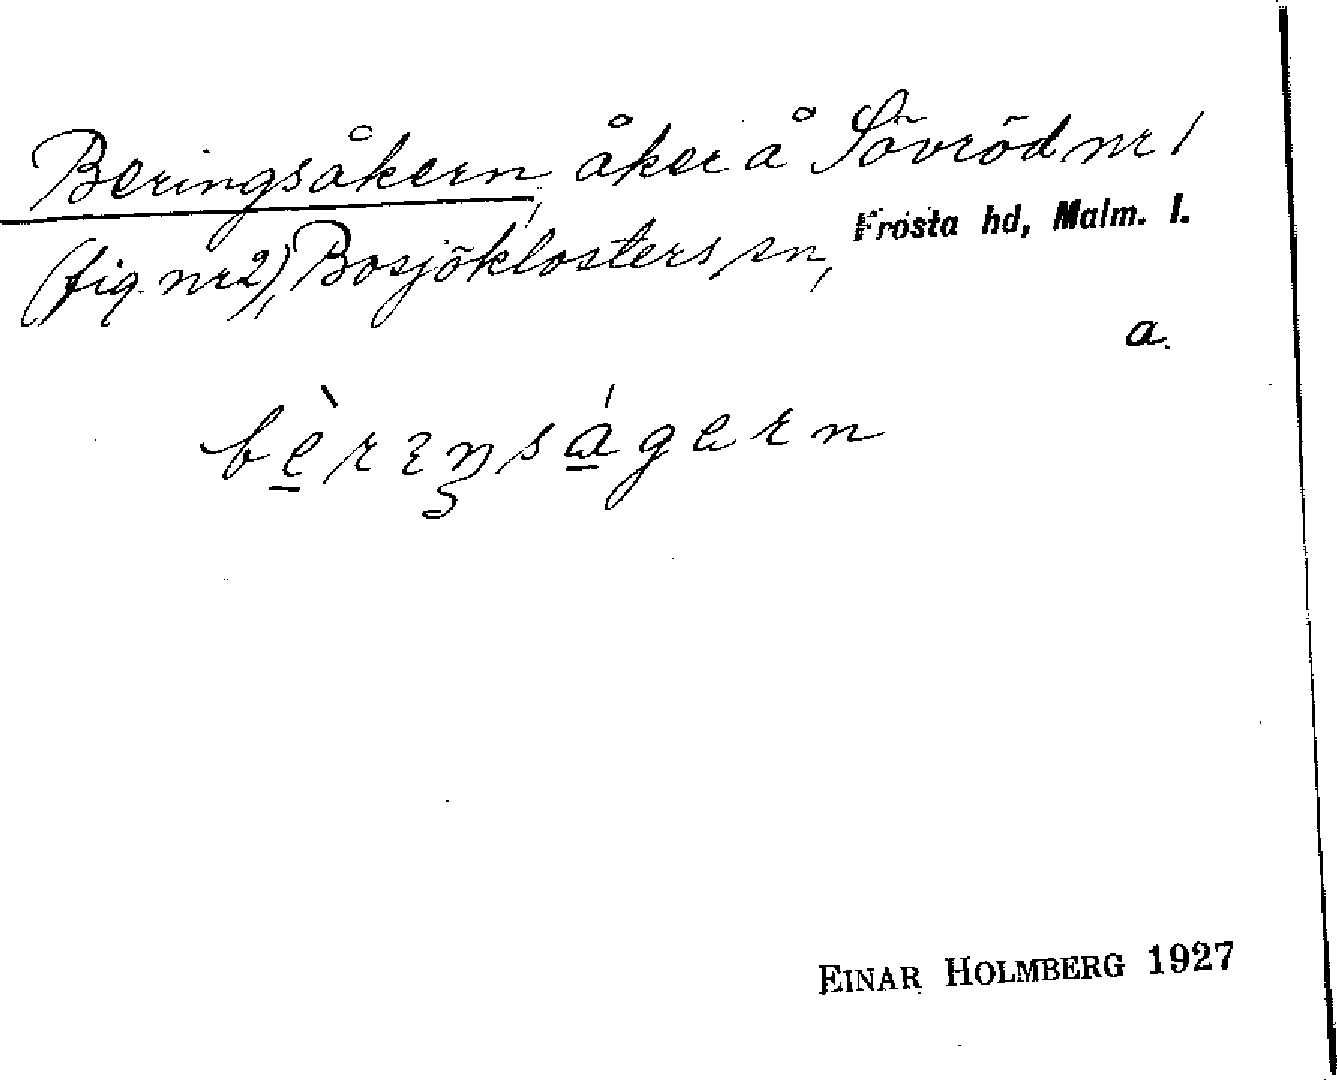 Beringsåkern, åker å Sövröd nr 1
(fig. nr 2), Bosjöklosters sn, Frosta hd, Malm. l.
a.
bè̠rɪŋsá̠gern
EINAR HOLMBERG 1927